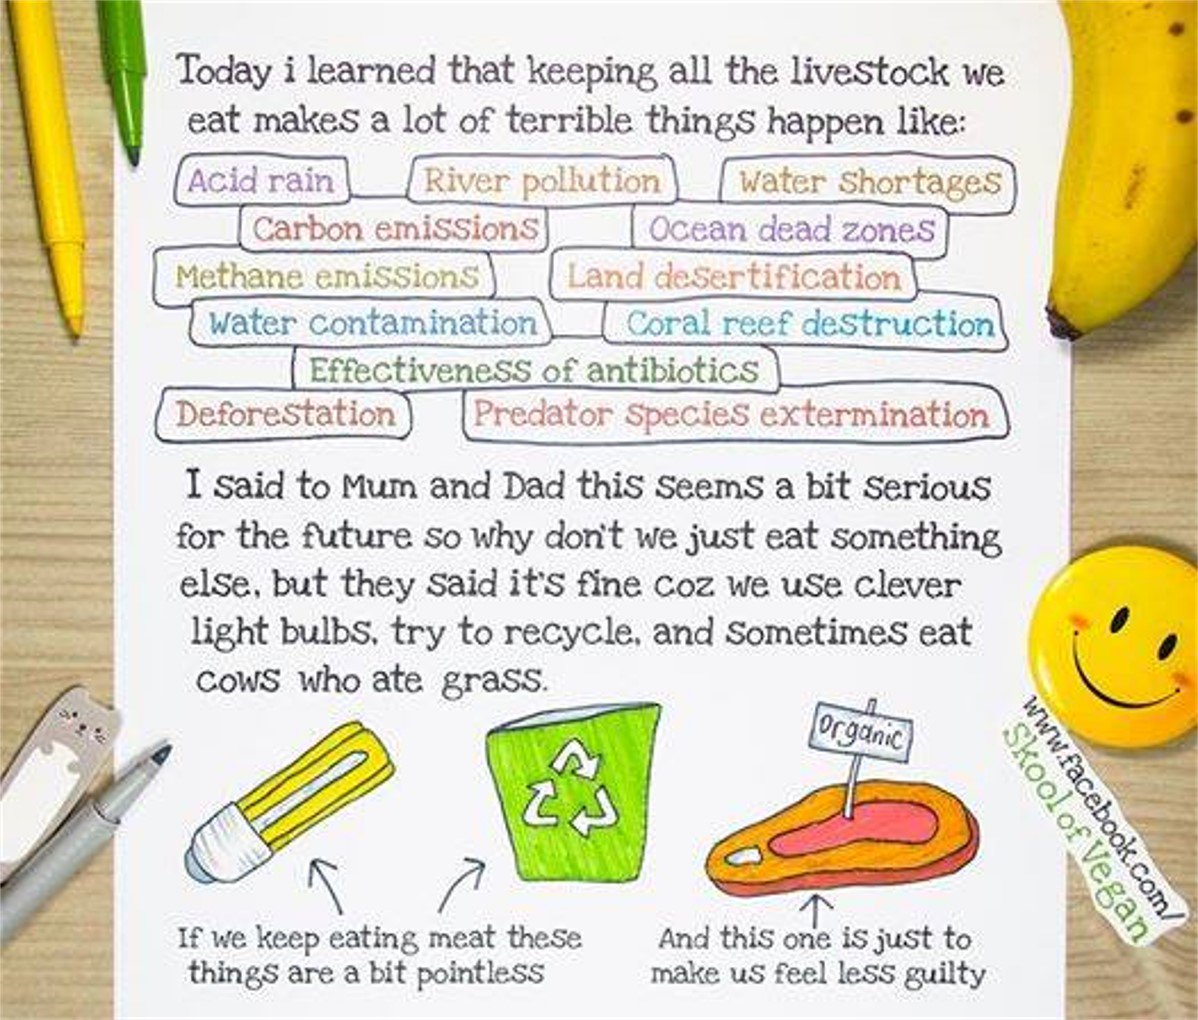 Today i learned that keeping all the livestock we
eat makes a lot of terrible things happen like:
Acid rain River pollution Water shortages
Carbon emissions Ocean dead zones
Methane emissions Land desertification
Water contamination Coral reef destruction
Effectiveness of antibiotics
Deforestation Predator species extermination
I said to Mum and Dad this seems a bit serious
for the future so why don't we just eat something
else, but they said it's fine coz we use clever
light bulbs, try to recycle, and sometimes eat
cows who ate grass.
organic
www.facebook.com/
Skool of Vegan
If we keep eating meat these
things are a bit pointless
And this one is just to
make us feel less guilty